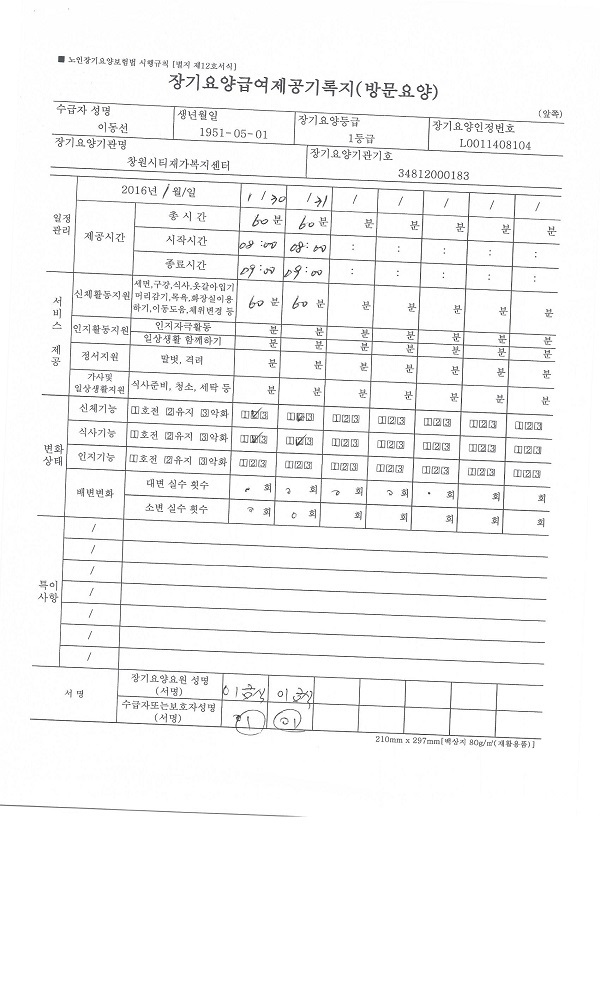 ■ 노인장기요양보험법 시행규칙 [별지 제12호서식]
장기요양급여제공기록지(방문요양)
(앞쪽)
수급자 성명 생년월일 장기요양등급 장기요양인정번호
이동선 1951-05-01 1등급 L0011408104
장기요양기관명 장기요양기관기호
창원시티재가복지센터 34812000183
일정관리 2016년 / 월/일 1/30 1/31 / / / / /
제공시간 총 시간 60분 60분 분 분 분 분 분
시작시간 08:00 08:00 : : : : :
종료시간 09:00 09:00 : : : : :
서비스 제공
신체활동지원 세면,구강,식사,옷갈아입기
머리감기,목욕,화장실이용
하기,이동도움,체위변경 등 60분 60분 분 분 분 분 분
인지활동지원 인지자극활동 분 분 분 분 분 분 분
일상생활 함께하기 분 분 분 분 분 분 분
정서지원 말벗, 격려 분 분 분 분 분 분 분
가사및
일상생활지원 식사준비, 청소, 세탁 등 분 분 분 분 분 분 분
변화상태
신체기능 1호전 2유지 3악화 123 123 123 123 123 123 123
식사기능 1호전 2유지 3악화 123 123 123 123 123 123 123
인지기능 1호전 2유지 3악화 123 123 123 123 123 123 123
배변변화 대변 실수 횟수 회 회 회 회 회 회 회
소변 실수 횟수 0 회 0 회 회 회 회 회 회
특이사항
/
/
/
/
/
/
/
서 명
장기요양요원 성명
(서명)
수급자또는보호자성명
(서명)
210mm x 297mm[백상지 80g/㎡(재활용품)]